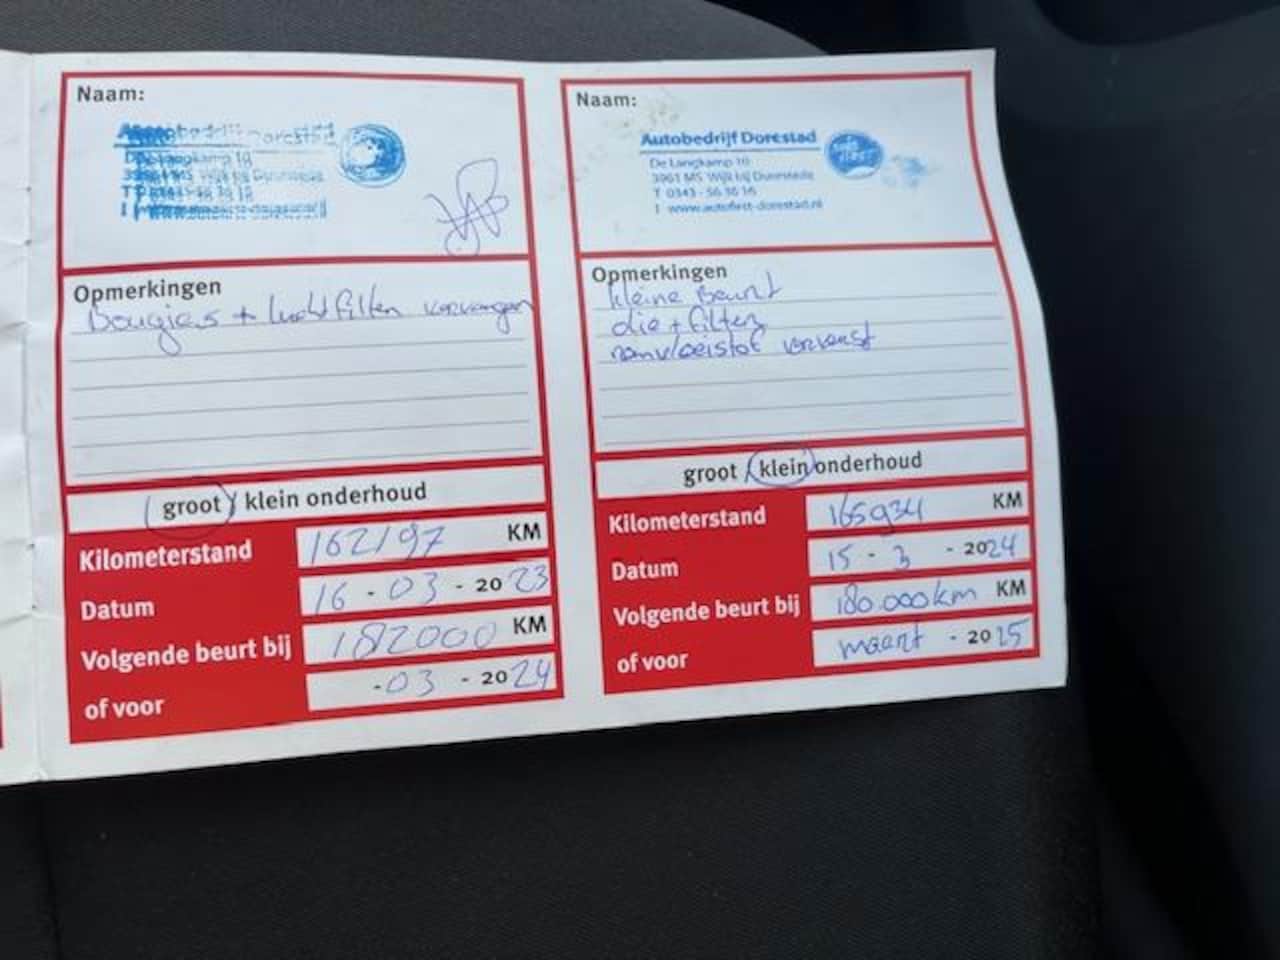 Naam:
Autobedrijf Dorestad
De Langkamp 10
3961 MS Wijk bij Duurstede
Opmerkingen
Bougies + luchtfilter vervangen
groot / klein onderhoud
Kilometerstand 162197 KM
Datum 16 - 03 - 2023
Volgende beurt bij 182000 KM
of voor - 03 - 2024
Naam:
Autobedrijf Dorestad
De Langkamp 10
3961 MS Wijk bij Duurstede
T 0343 - 56 36 16
I www.autofirst-dorestad.nl
Opmerkingen
kleine Beurt
olie + filter
remvloeistof ververst
groot / klein onderhoud
Kilometerstand 165934 KM
Datum 15 - 3 - 2024
Volgende beurt bij 180.000km KM
of voor maart - 2025